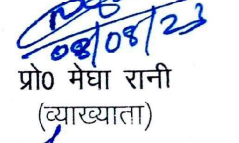 08/08/23
प्रो0 मेघा रानी
(व्याख्याता)